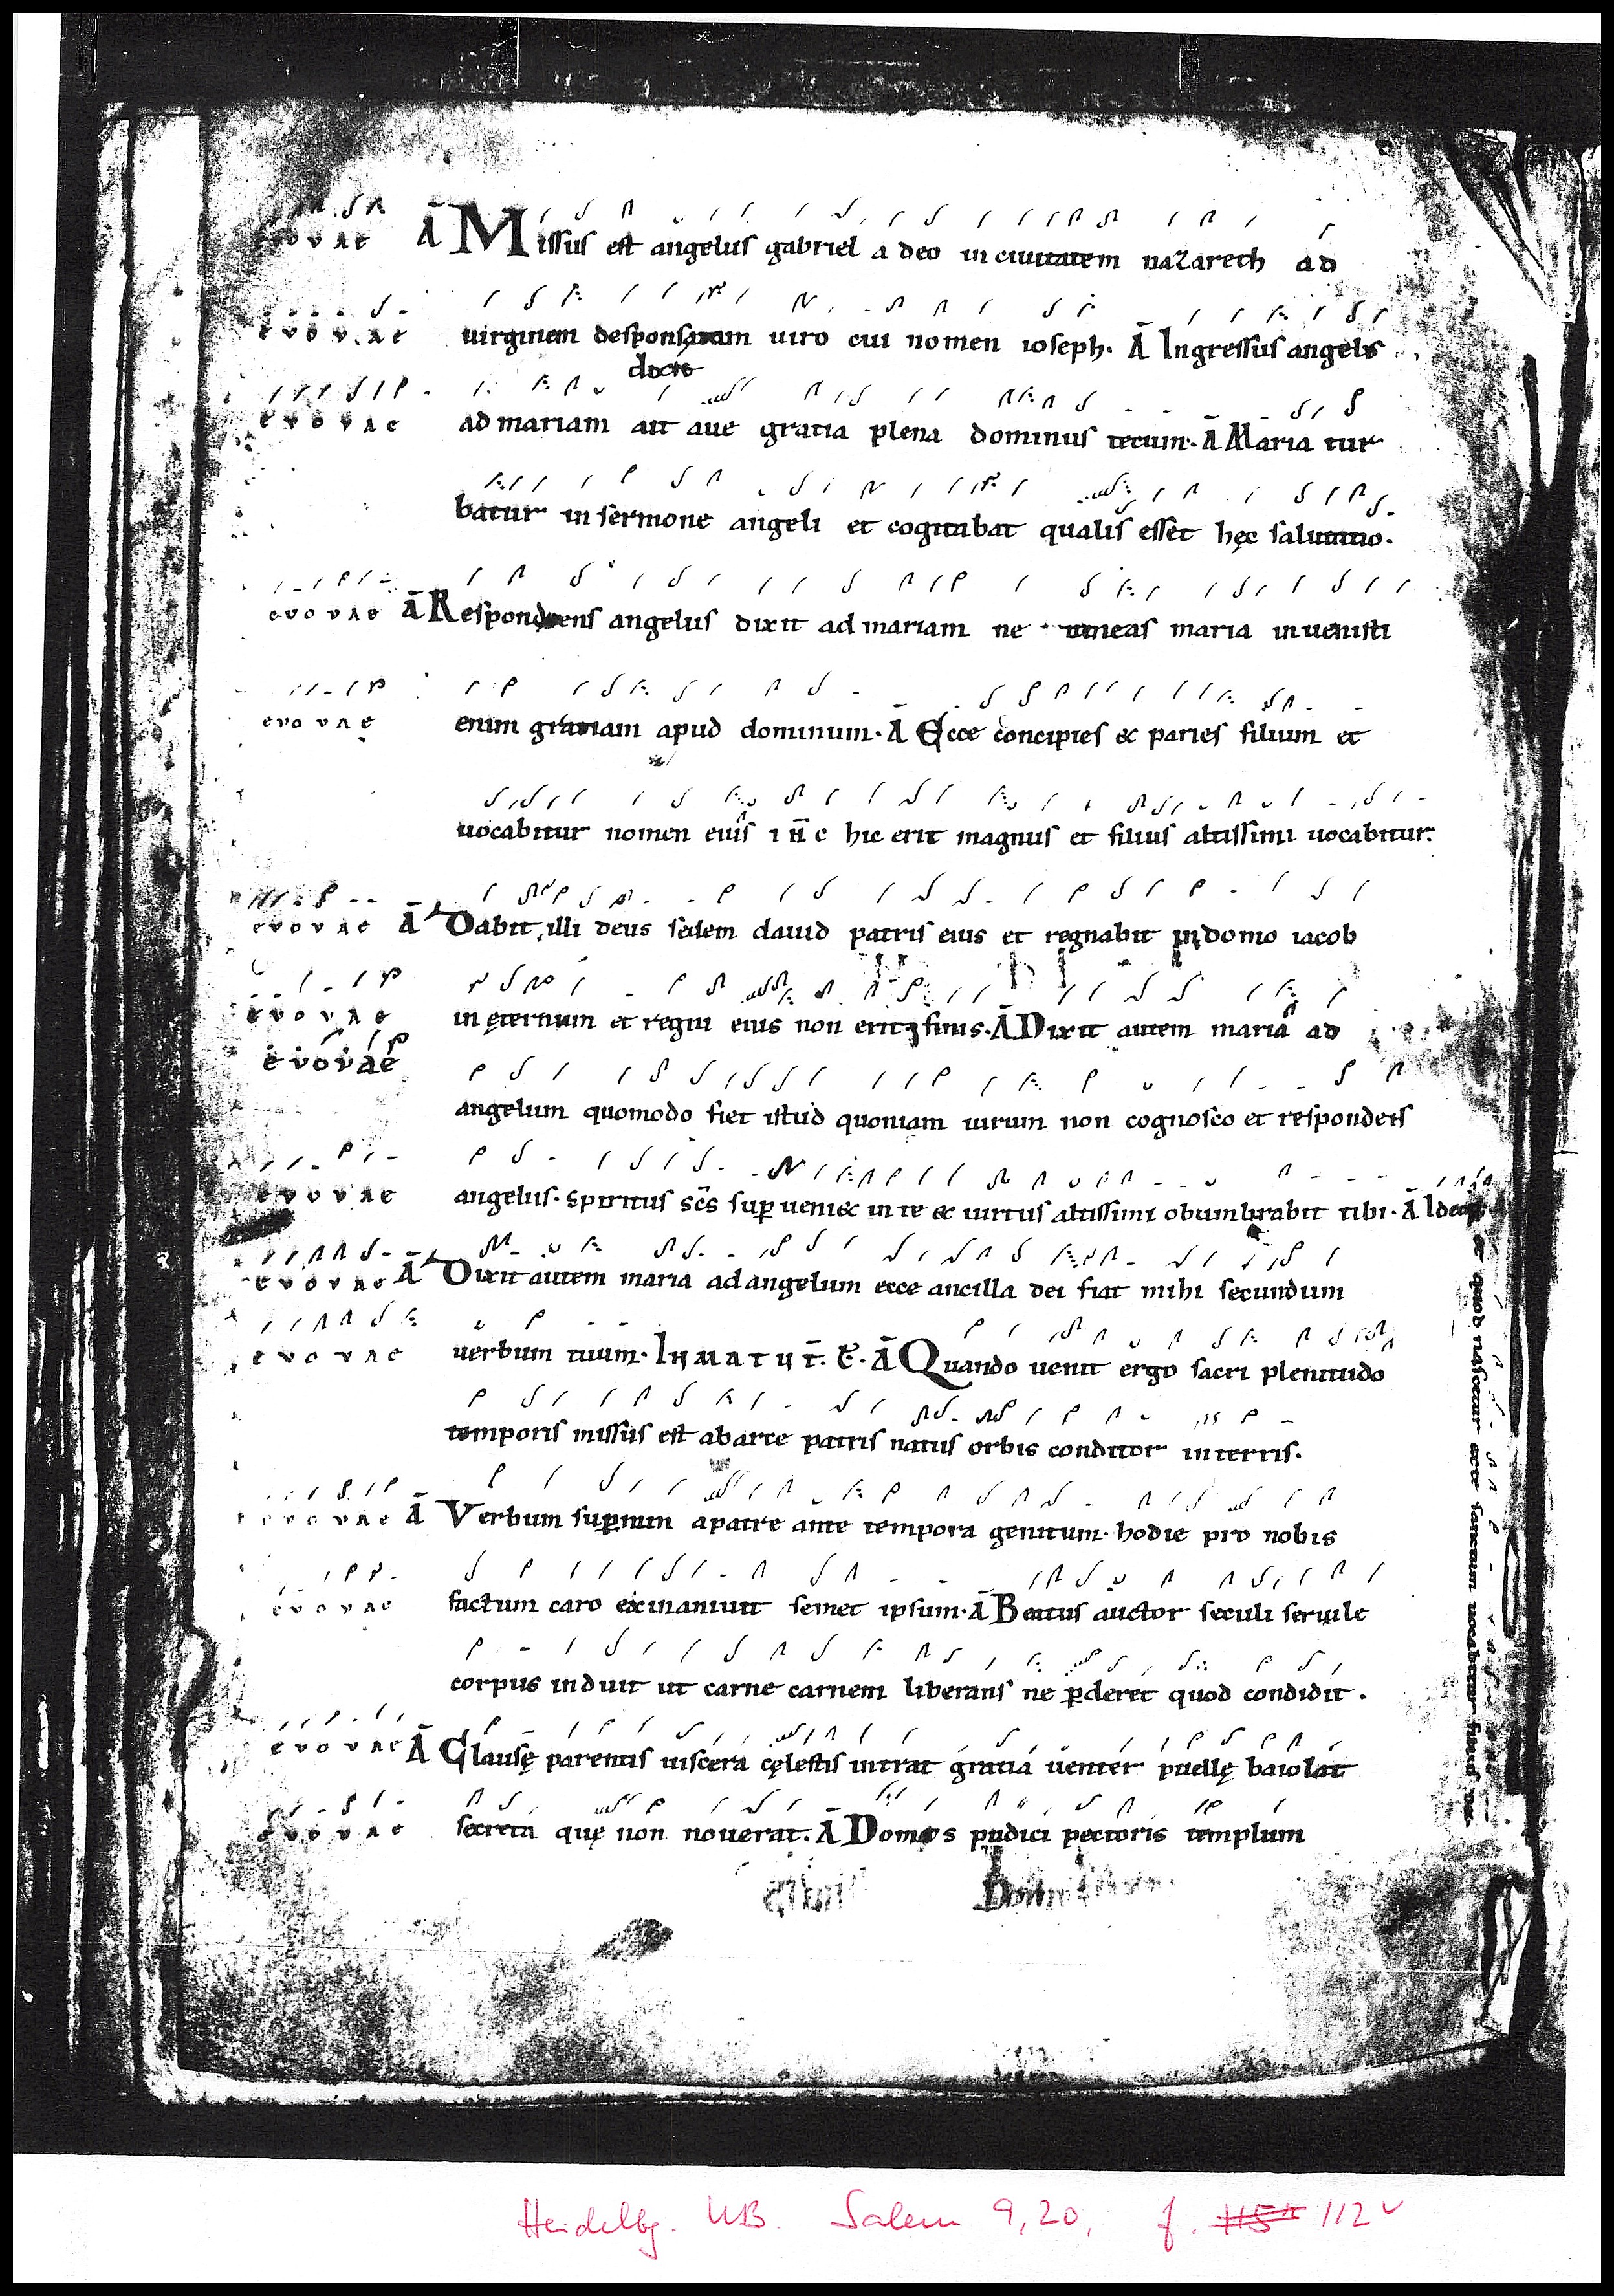 e v o v a e Ā Missus est angelus gabriel a deo in ciuitatem nazareth ad
e v o v a e uirginem desponsatam uiro cui nomen ioseph. Ā Ingressus angelus
e v o v a e ad mariam ait aue gratia plena dominus tecum. Ā Maria tur
batur in sermone angeli et cogitabat qualis esset hęc salutatio.
e v o v a e Ā Respondens angelus dixit ad mariam ne timeas maria inuenisti
e v o v a e enim gratiam apud dominum. Ā Ecce concipies & paries filium et
uocabitur nomen eius hic erit magnus et filius altissimi uocabitur.
e v o v a e Ā Dabit illi deus sedem dauid patris eius et regnabit in domo iacob
e v o v a e in ęternum et regni eius non erit finis. Ā Dixit autem maria ad
e v o v a e
angelum quomodo fiet istud quoniam uirum non cognosco et respondens
e v o v a e angelus. Spiritus sc̄s sup ueni& in te & uirtus altissimi obumbrabit tibi. Ā Ideoq
e v o v a e Ā Dixit autem maria ad angelum ecce ancilla dei fiat mihi secundum
e v o v a e uerbum tuum. IN MATUT̄. Ē. Ā Quando uenit ergo sacri plenitudo
temporis missus est ab arce patris natus orbis conditor in terris.
e v o v a e Ā Verbum supnum a patre ante tempora genitum. hodie pro nobis
e v o v a e factum caro exinaniuit semet ipsum. Ā Beatus auctor seculi seruile
corpus induit ut carne carnem liberans ne pderet quod condidit.
e v o v a e Ā Clausę parentis uiscera cęlestis intrat gratia uenter puellę baiolat
e v o v a e secreta quę non nouerat. Ā Domus pudici pectoris templum
& quod nascetur ex te sanctum uocabitur filius dei
Heidelbg. UB. Salem 9,20, f. 112v